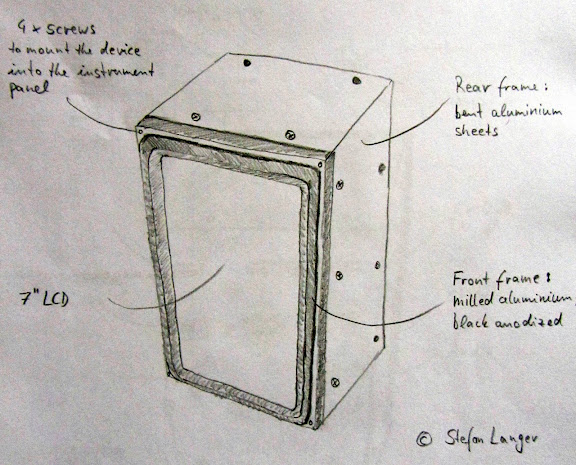 4 x screws
to mount the device
into the instrument
panel
Rear frame:
bent aluminium
sheets
7" LCD
Front frame:
milled aluminium,
black anodized
© Stefan Langer